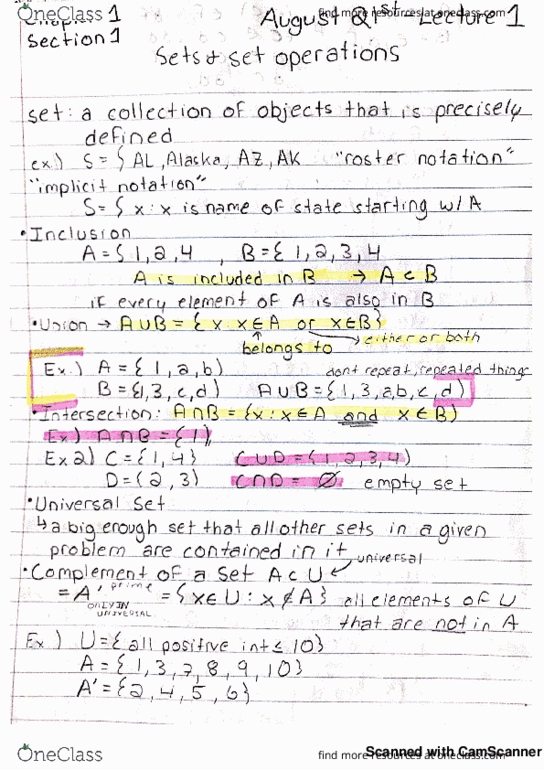 OneClass
Chapter 1
August 21st - Lecture 1
find more resources at oneclass.com
Section 1
Sets & set operations
set: a collection of objects that is precisely
defined
ex.) S = { AL, Alaska, AZ, AK "roster notation"
"implicit notation"
S = { x : x is name of state starting w/ A
• Inclusion
A = { 1, 2, 4 , B = { 1, 2, 3, 4
A is included in B → A ⊂ B
if every element of A is also in B
• Union → A∪B = { x x ∈ A or x ∈ B}
either or both
belongs to
Ex.) A = {1, a, b) dont repeat, repeated things
B = {1, 3, c, d) A∪B = {1, 3, a, b, c, d)
• Intersection: A∩B = {x : x ∈ A and x ∈ B)
Ex) A∩B = {1},
Ex 2) C = {1, 4} C∪D = {1, 2, 3, 4)
D = {2, 3) C∩D = ∅ empty set
• Universal Set
↳ a big enough set that all other sets in a given
problem are contained in it
universal
• Complement of a Set A ⊂ U
= A' prime = {x ∈ U : x ∉ A} all elements of U
ONLY IN
UNIVERSAL
that are not in A
Ex) U = {all positive int ≤ 10}
A = {1, 3, 7, 8, 9, 10}
A' = {2, 4, 5, 6}
OneClass
find more resources at oneclass.com
Scanned with CamScanner